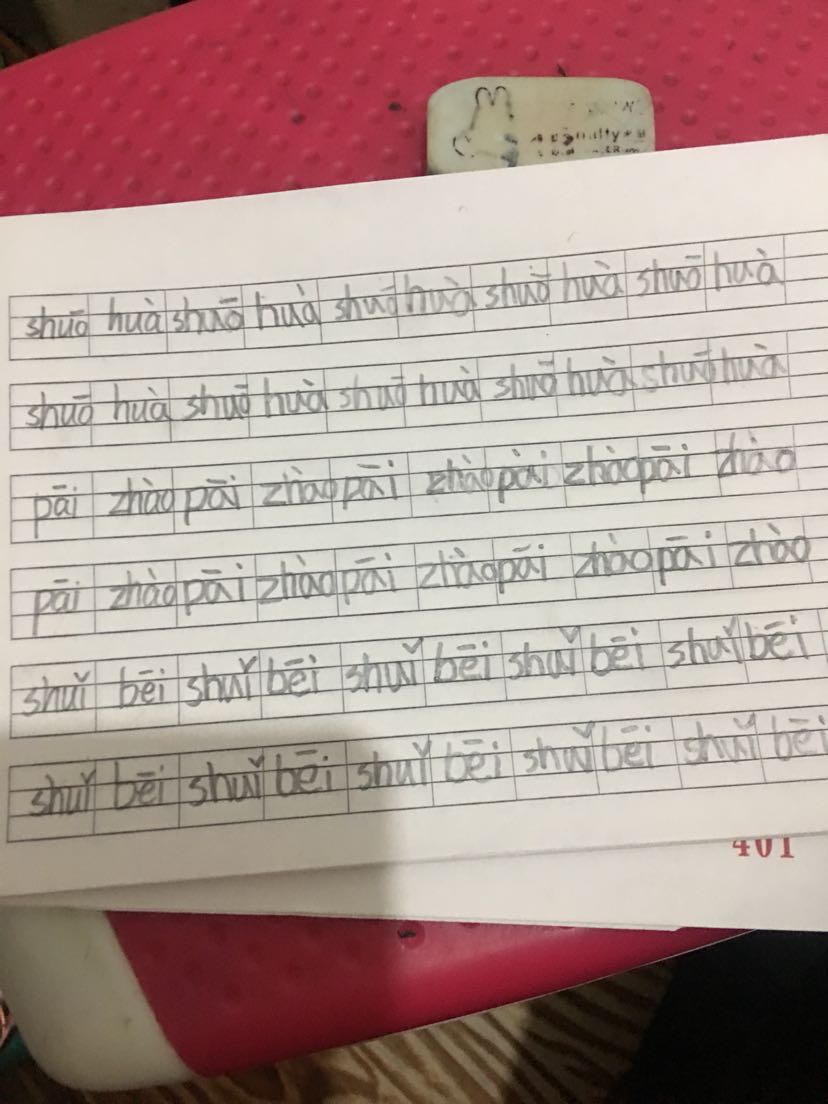 shuō huà shuō huà shuō huà shuō huà shuō huà
shuō huà shuō huà shuō huà shuō huà shuō huà
pāi zhào pāi zhào pāi zhào pài zhào pāi zhào
pāi zhào pāi zhào pāi zhào pāi zhào pāi zhào
shuǐ bēi shuǐ bēi shuǐ bēi shuǐ bēi shuǐ bēi
shuǐ bēi shuǐ bēi shuǐ bēi shuǐ bēi shuǐ bēi
401